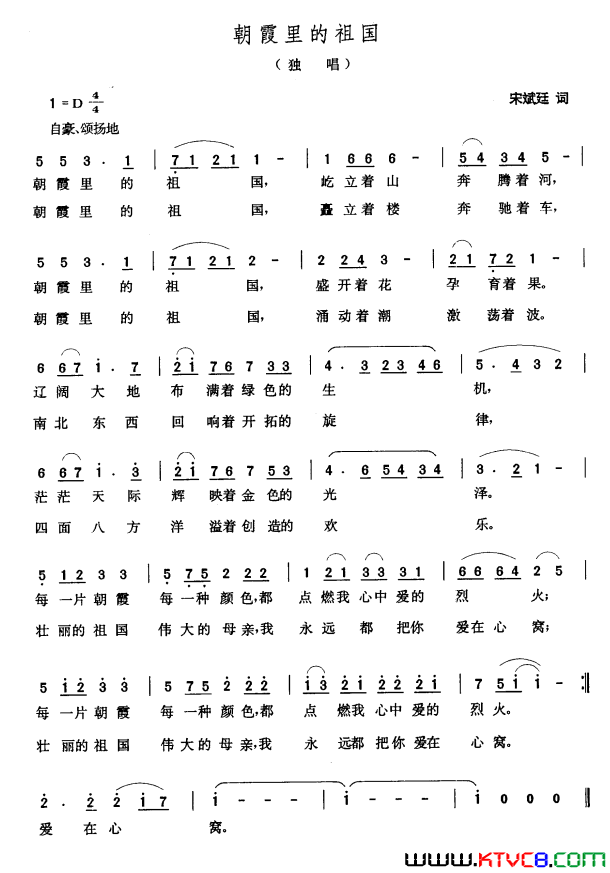 朝霞里的祖国
（独 唱）
1=D 4/4
宋斌廷 词
自豪、颂扬地
5 5 3 · 1 | 7 1 2 1 1 - | 1 6 6 6 - | 5 4 3 4 5 - |
朝霞里的 祖 国, 屹立着山 奔 腾着河,
朝霞里的 祖 国, 矗立着楼 奔 驰着车,
5 5 3 · 1 | 7 1 2 1 2 - | 2 2 2 4 - | 2 1 7 2 1 - |
朝霞里的 祖 国, 盛开着花 孕 育着果。
朝霞里的 祖 国, 涌动着潮 激 荡着波。
6 6 7 1 · 7 | 2 1 7 6 7 3 3 | 4 · 3 2 3 4 6 | 5 · 4 3 2 |
辽阔大地 布 满着绿色的 生 机,
南北东西 回 响着开拓的 旋 律,
6 6 7 1 · 3 | 2 1 7 6 7 5 3 | 4 · 6 5 4 3 4 | 3 · 2 1 - |
茫茫天际 辉 映着金色的 光 泽。
四面八方 洋 溢着创造的 欢 乐。
5 1 2 3 3 | 5 7 5 2 2 2 | 1 2 1 3 3 3 1 | 6 6 6 4 2 5 |
每一片朝霞 每一种颜色,都 点燃我心中爱的 烈 火;
壮丽的祖国 伟大的母亲,我 永远都把你 爱在心 窝。
5 1 2 3 3 | 5 7 5 2 2 2 | 1 3 2 1 2 2 2 1 | 7 5 1 1 - :‖
每一片朝霞 每一种颜色,都 点 燃我心中爱的 烈火。
壮丽的祖国 伟大的母亲,我 永 远都把你爱在 心窝。
2 · 2 2 1 7 | 1 - - - | 1 - - - | 1 0 0 0 ‖
爱 在心 窝。
www.KTVC8.com